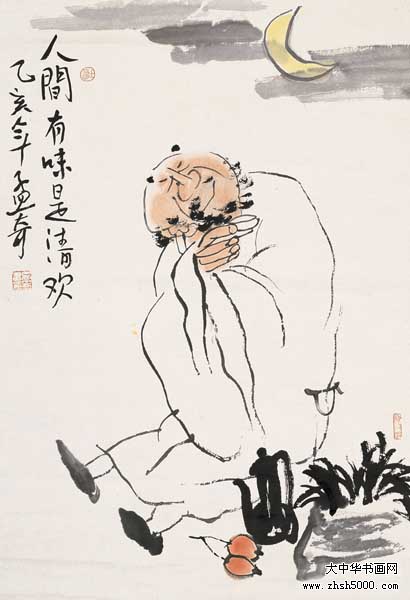 人間有味是清欢
乙亥年孟奇
大中华书画网
www.zhsh5000.com